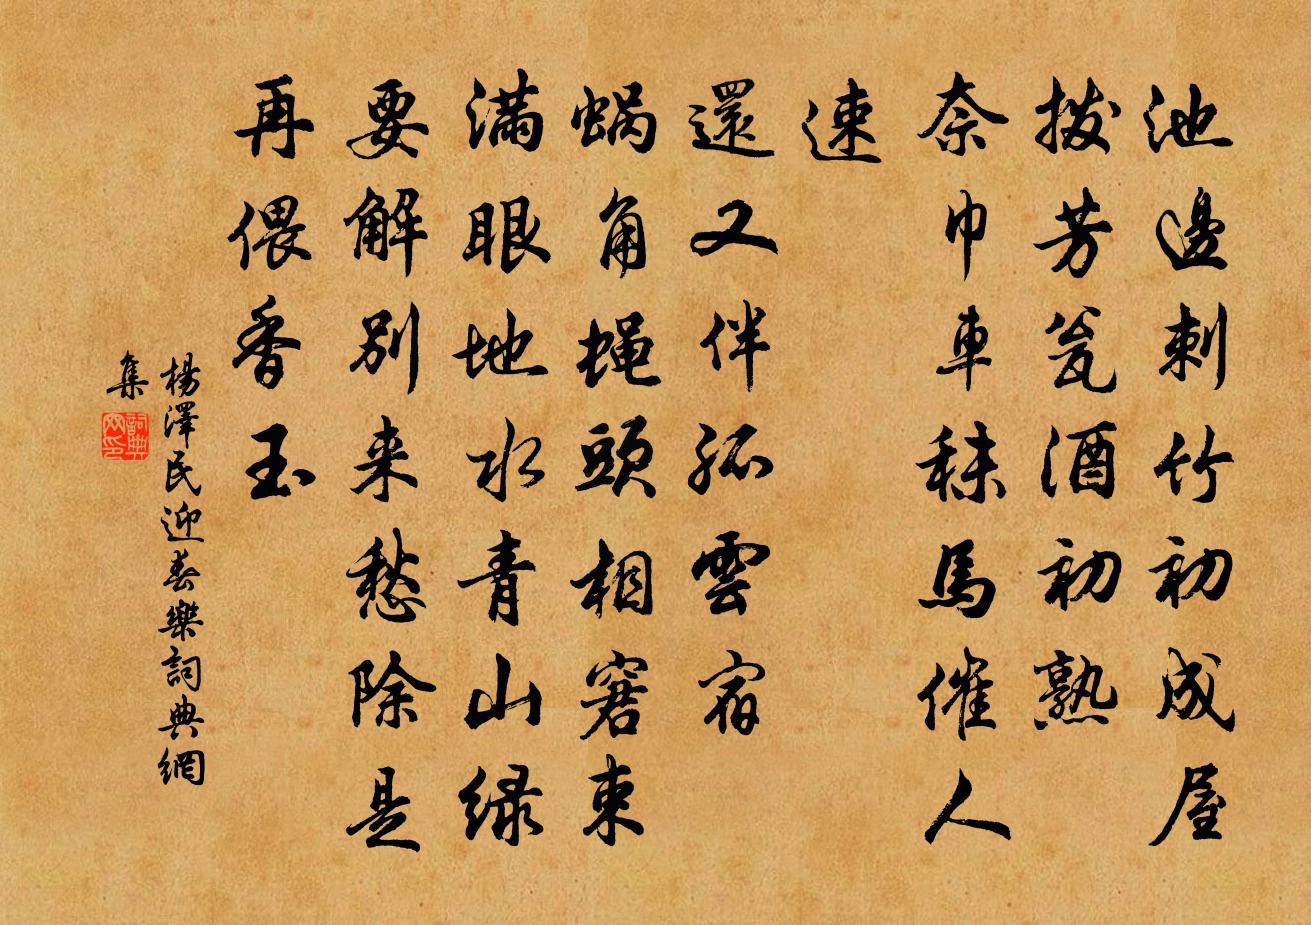 池邊刺竹初成屋
拨芳瓮酒初熟
奈巾車秣馬催人
速
還又伴孤雲宿
蜗角蝇頭相窘束
滿眼地水青山緑
要解别来愁除是
再偎香玉
楊澤民迎春樂詞典網
集
詞典
网印